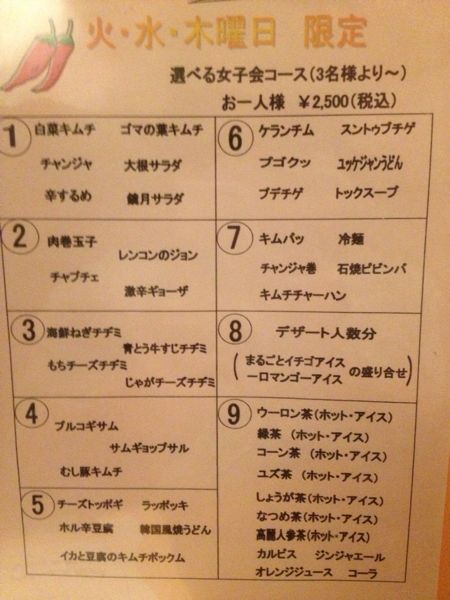 火・水・木曜日 限定
選べる女子会コース(3名様より～)
お一人様 ￥2,500(税込)
1
白菜キムチ ゴマの葉キムチ
チャンジャ 大根サラダ
辛するめ 鏡月サラダ
2
肉巻玉子
レンコンのジョン
チャプチェ
激辛ギョーザ
3
海鮮ねぎチヂミ
青とう牛すじチヂミ
もちチーズチヂミ
じゃがチーズチヂミ
4
プルコギサム
サムギョップサル
むし豚キムチ
5
チーズトッポギ ラッポッキ
ホル辛豆腐 韓国風焼うどん
イカと豆腐のキムチポックム
6
ケランチム スントゥブチゲ
プゴクッ ユッケジャンうどん
プデチゲ トックスープ
7
キムパッ 冷麺
チャンジャ巻 石焼ビビンバ
キムチチャーハン
8
デザート人数分
(まるごとイチゴアイス
一口マンゴーアイス の盛り合せ)
9
ウーロン茶(ホット・アイス)
緑茶 (ホット・アイス)
コーン茶 (ホット・アイス)
ユズ茶 (ホット・アイス)
しょうが茶(ホット・アイス)
なつめ茶(ホット・アイス)
高麗人参茶(ホット・アイス)
カルピス ジンジャエール
オレンジジュース コーラ